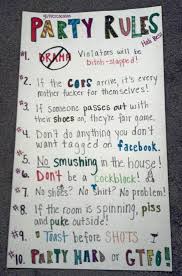 PARTY RULES
#1. DRAMA Violators will be
bitch-slapped!
#2. If the COPS arrive, it's every
mother fucker for themselves!
#3. If someone passes out with
their shoes on, they're fair game.
#4. Don't do anything you don't
want tagged on facebook.
#5. No smushing in the house!
#6. Don't be a Cockblock!
#7. No Shoes? No Shirt? No Problem!
#8. If the room is spinning, piss
and puke outside!
#9. Toast before SHOTS.
#10. PARTY HARD or GTFO!